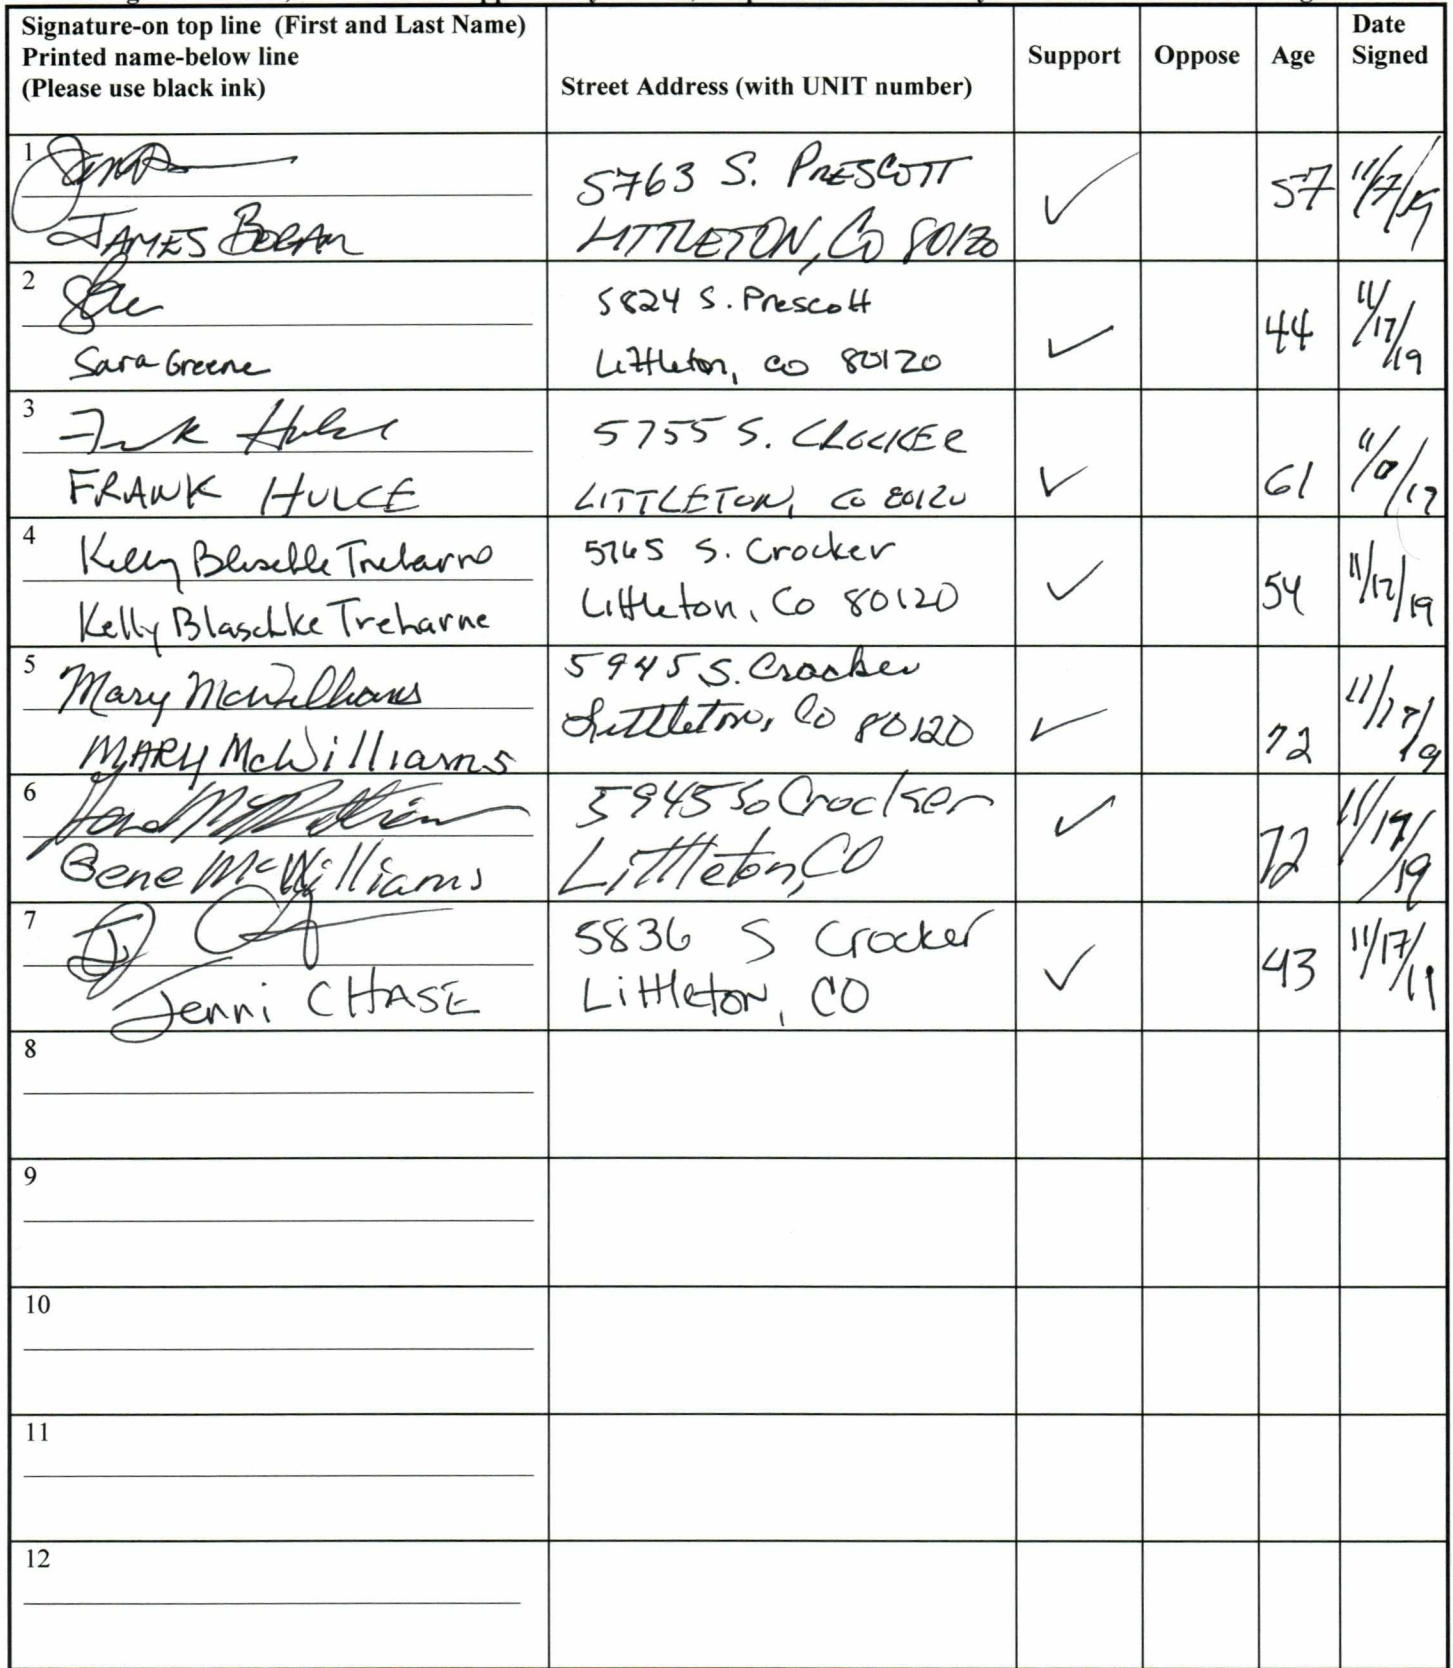 Signature-on top line (First and Last Name)
Printed name-below line
(Please use black ink)
Street Address (with UNIT number)
Support
Oppose
Age
Date
Signed
1
JAMES
5763 S. PRESCOTT
LITTLETON, CO 80120
57
2
Sara Greene
5824 S. Prescott
Littleton, co 80120
44
11/17/19
3
FRANK HULCE
5755 S. CROCKER
LITTLETON, CO 80120
61
4
Kelly Blaschke Treharne
Kelly Blaschke Treharne
5765 S. Crocker
Littleton, Co 80120
54
11/17/19
5
Mary McWilliams
MARY McWilliams
5945 S. Crocker
Littleton, Co 80120
72
11/17/19
6
Gene McWilliams
5945 So Crocker
Littleton, CO
72
11/17/19
7
Jenni CHASE
5836 S Crocker
Littleton, CO
43
11/17/19
8
9
10
11
12